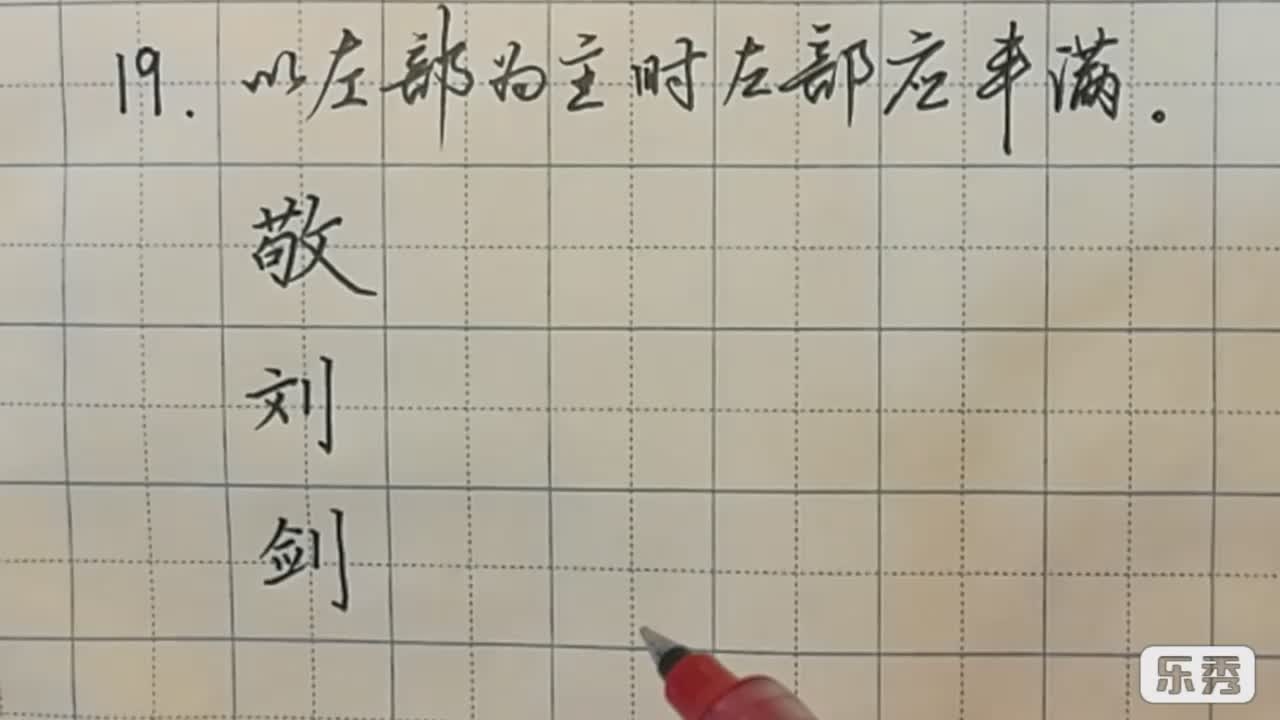 19. 以左部为主时左部应丰满。
敬
刘
剑
乐秀